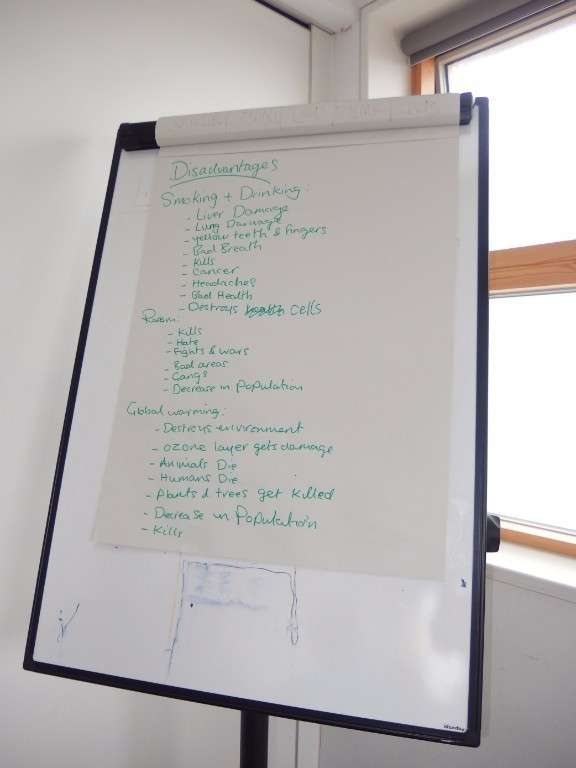 Disadvantages
Smoking + Drinking:
- Liver Damage
- Lung Damage
- yellow teeth & fingers
- Bad Breath
- Kills
- Cancer
- Headaches
- Bad Health
- Destroys cells
- Kills
- Hate
- Fights & wars
- Bad areas
- Gangs
- Decrease in Population
Global warming:
- Destroys environment
- ozone layer gets damage
- Animals Die
- Humans Die
- Plants & trees get killed
- Decrease in Population
- Kills